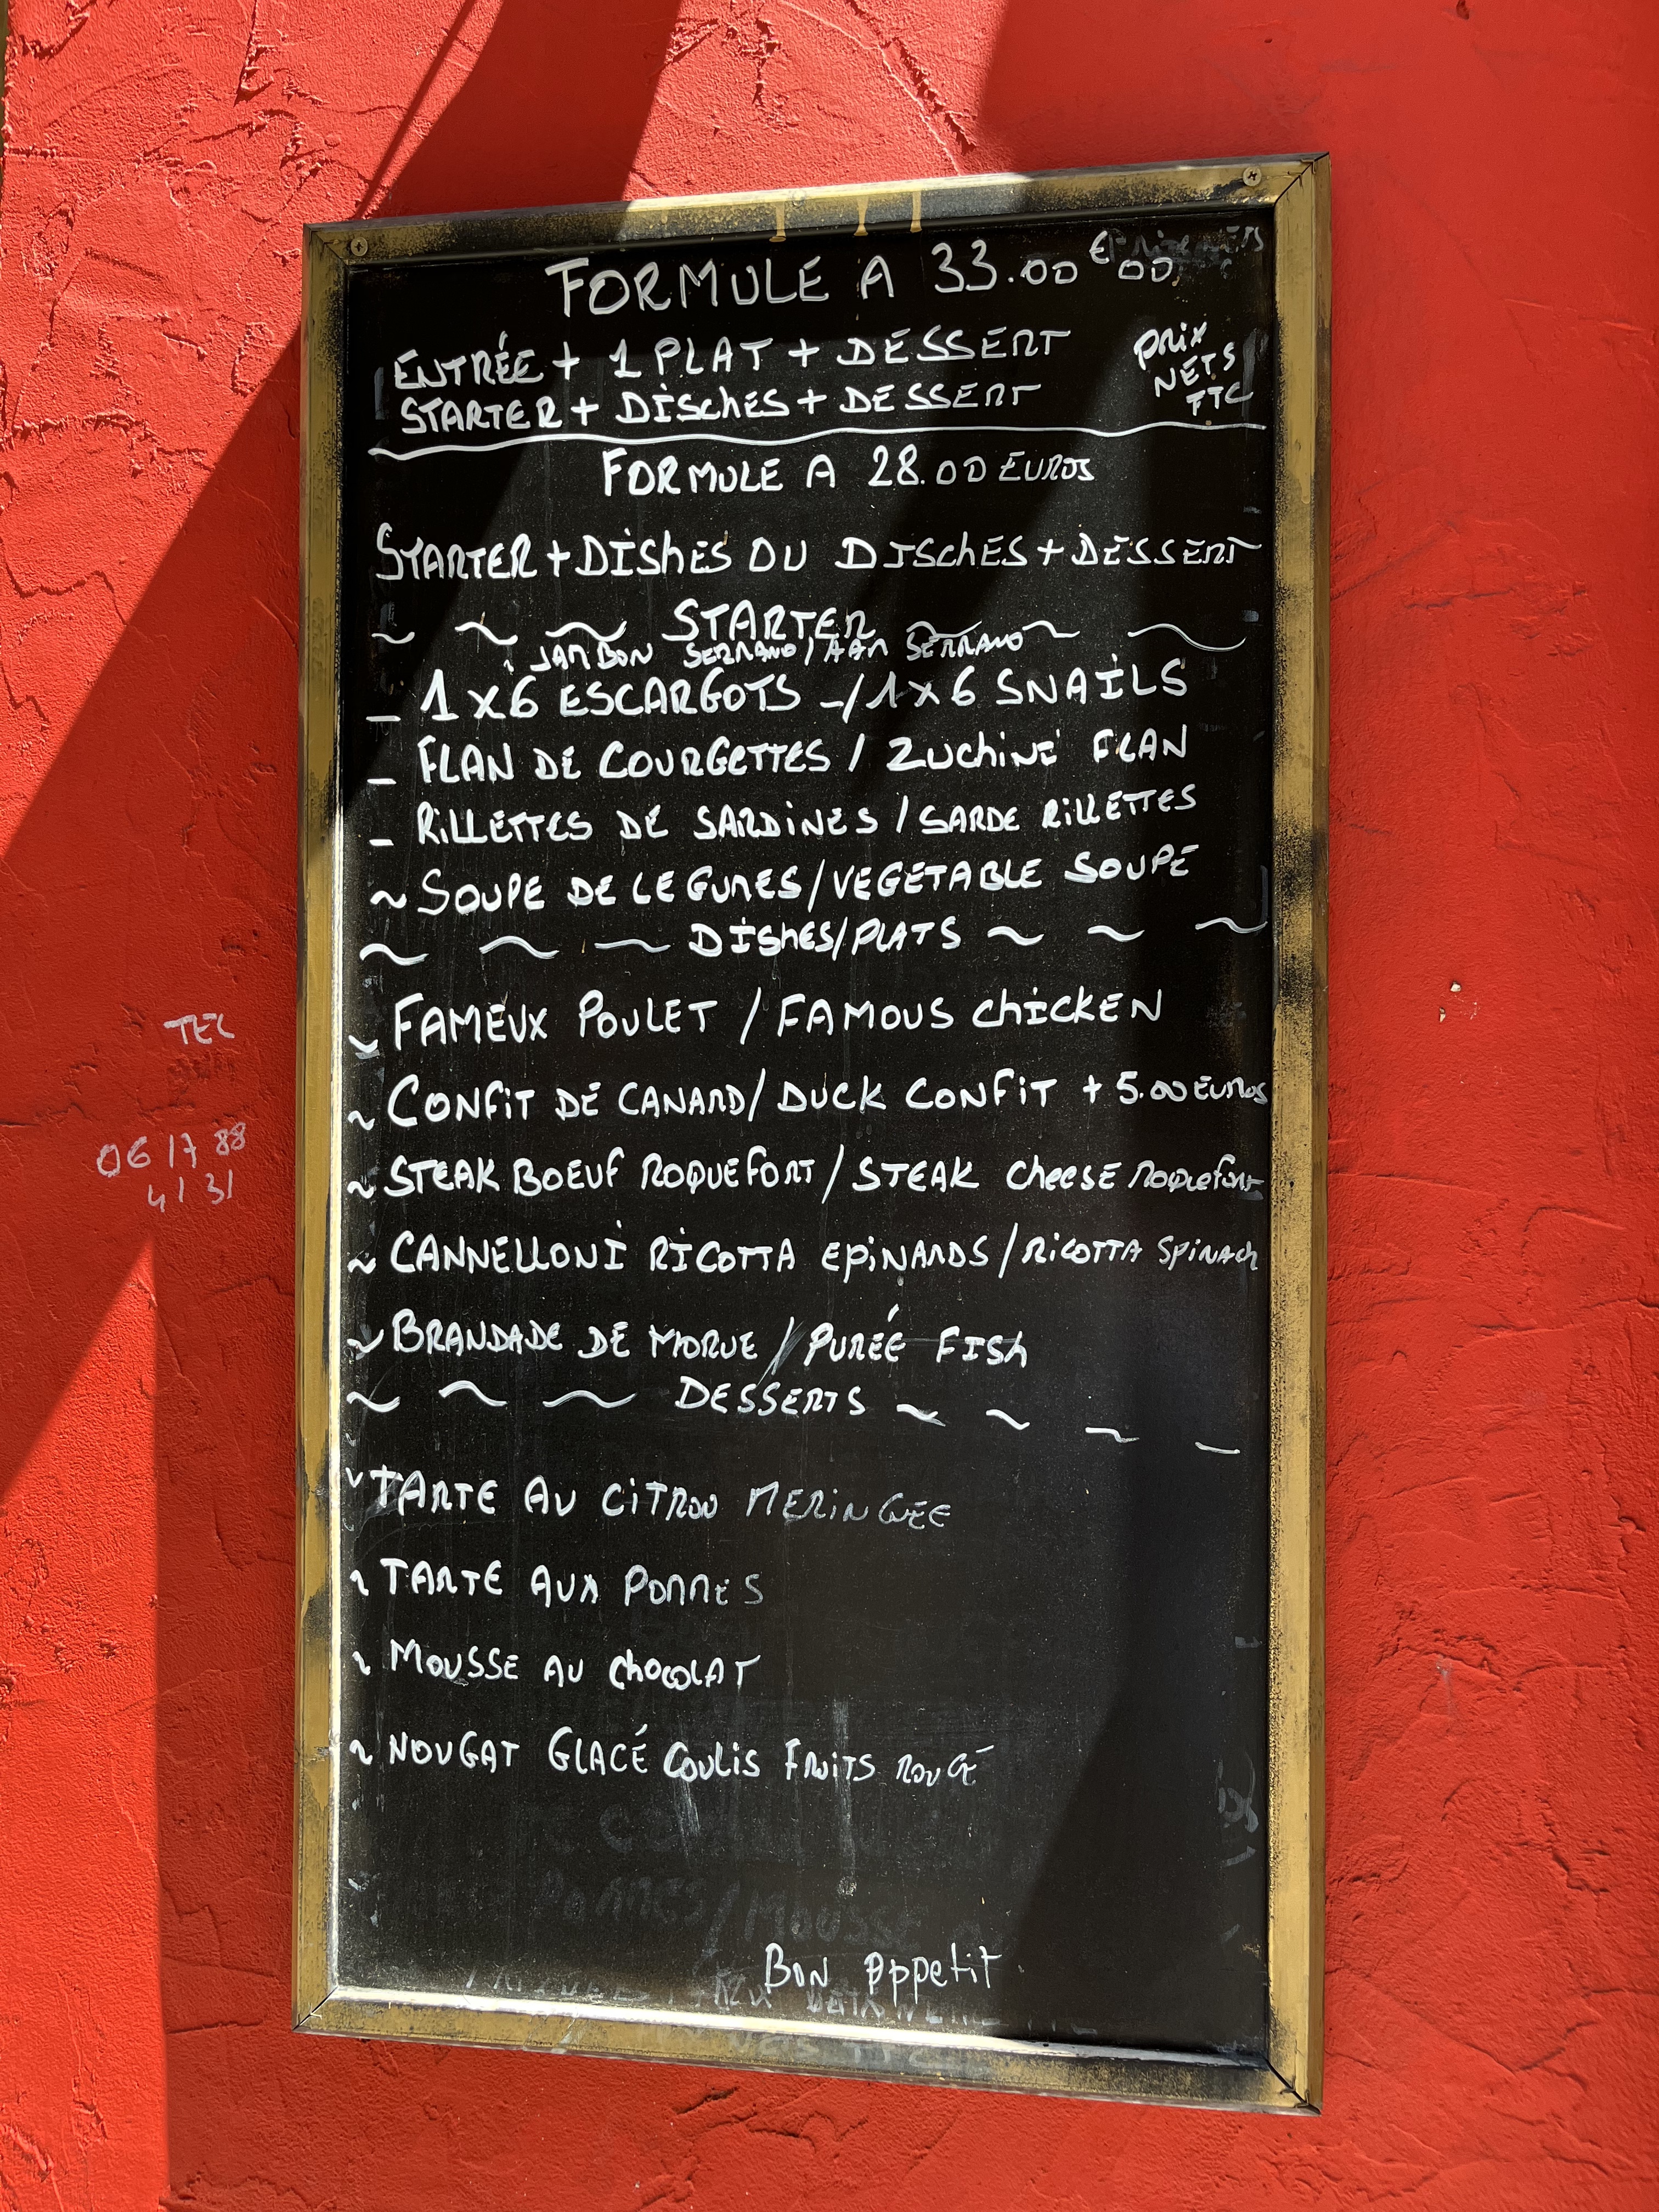 FORMULE A 33.00 € 00
ENTRÉE + 1 PLAT + DESSERT
STARTER + DISCHES + DESSERT
PRIX
NETS
TTC
FORMULE A 28.00 EUROS
STARTER + DISHES OU DISCHES + DESSERT
~ ~ ~ STARTER ~ ~ ~
JAMBON SERRANO / HAM SERRANO
- 1 x 6 ESCARGOTS -/ 1 x 6 SNAILS
- FLAN DE COURGETTES / ZUCHINE FLAN
- RILLETTES DE SARDINES / SARDE RILLETTES
~ SOUPE DE LEGUMES / VEGETABLE SOUPE
~ ~ ~ DISHES/PLATS ~ ~ ~
~ FAMEUX POULET / FAMOUS CHICKEN
~ CONFIT DE CANARD / DUCK CONFIT + 5.00 EUROS
~ STEAK BOEUF ROQUEFORT / STEAK CHEESE ROQUEFORT
~ CANNELLONI RICOTTA EPINARDS / RICOTTA SPINACH
~ BRANDADE DE MORUE / PURÉE FISH
~ ~ ~ DESSERTS ~ ~ ~ ~
~ TARTE AU CITRON MERINGUEE
~ TARTE AUX POMMES
~ MOUSSE AU CHOCOLAT
~ NOUGAT GLACÉ COULIS FRUITS ROUGE
BON APPETIT
TEL
06 17 88
41 31